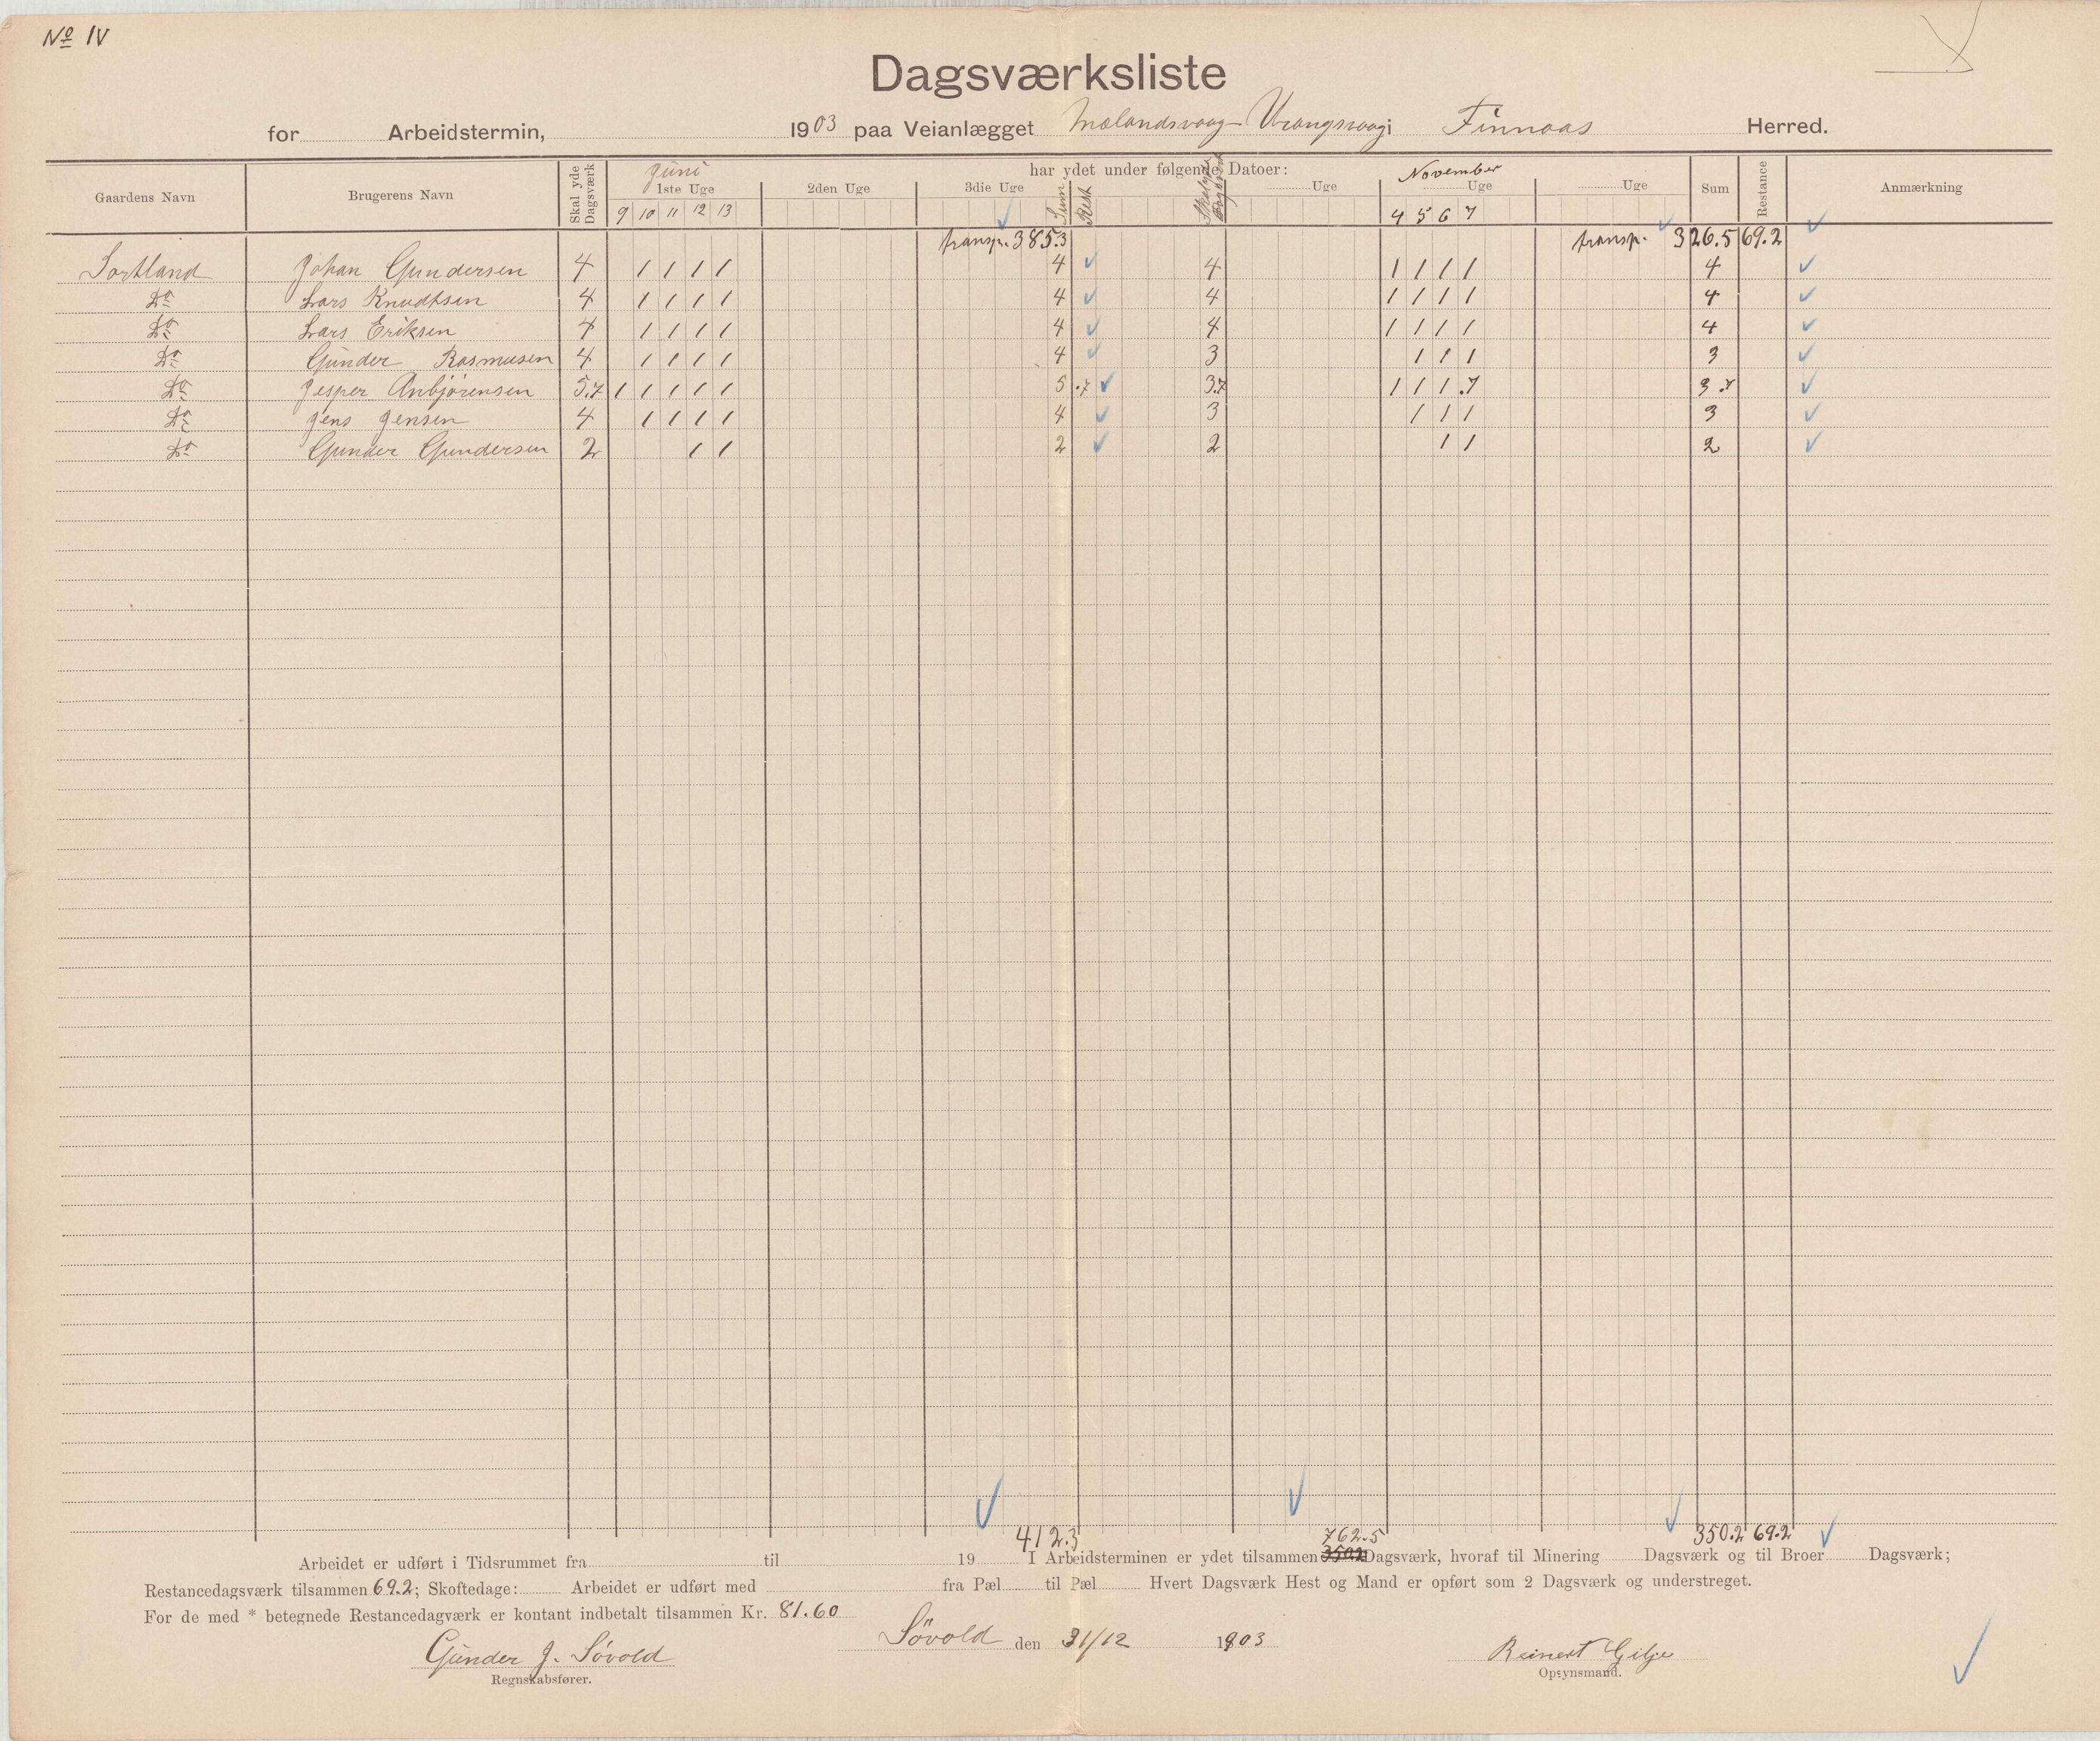 No IV
Dagsværksliste
for Arbeidstermin, 1903 paa Veianlægget Mælandsvaag-Vrangsvaag i Finnaas Herred.
Gaardens Navn Brugerens Navn Skal yde Dagsværk har ydet under følgende Datoer: Sum Restance Anmærkning
Juni 1ste Uge 2den Uge 3die Uge Sum Rest Uge November Uge Uge
9 10 11 12 13 4 5 6 7
transp. 385.3 transp. 326.5 69.2
Sortland Johan Gundersen 4 1 1 1 1 4 4 1 1 1 1 4
Do Lars Knudtsen 4 1 1 1 1 4 4 1 1 1 1 4
Do Lars Eriksen 4 1 1 1 1 4 4 1 1 1 1 4
Do Gunder Rasmusen 4 1 1 1 1 4 3 1 1 1 3
Do Jesper Anbjørensen 5.7 1 1 1 1 1 5 .7 3.7 1 1 1 .7 3.7
Do Jens Jensen 4 1 1 1 1 4 3 1 1 1 3
Do Gunder Gundersen 2 1 1 2 2 1 1 2
412.3 762.5 350.2 69.2
Arbeidet er udført i Tidsrummet fra til 19 I Arbeidsterminen er ydet tilsammen 350.2 Dagsværk, hvoraf til Minering Dagsværk og til Broer Dagsværk;
Restancedagsværk tilsammen 69.2; Skoftedage: Arbeidet er udført med fra Pæl til Pæl Hvert Dagsværk Hest og Mand er opført som 2 Dagsværk og understreget.
For de med * betegnede Restancedagværk er kontant indbetalt tilsammen Kr. 81.60
Sövold den 31/12 1903
Gunder J. Sövold Reinert Gilje
Regnskabsfører. Opsynsmand.